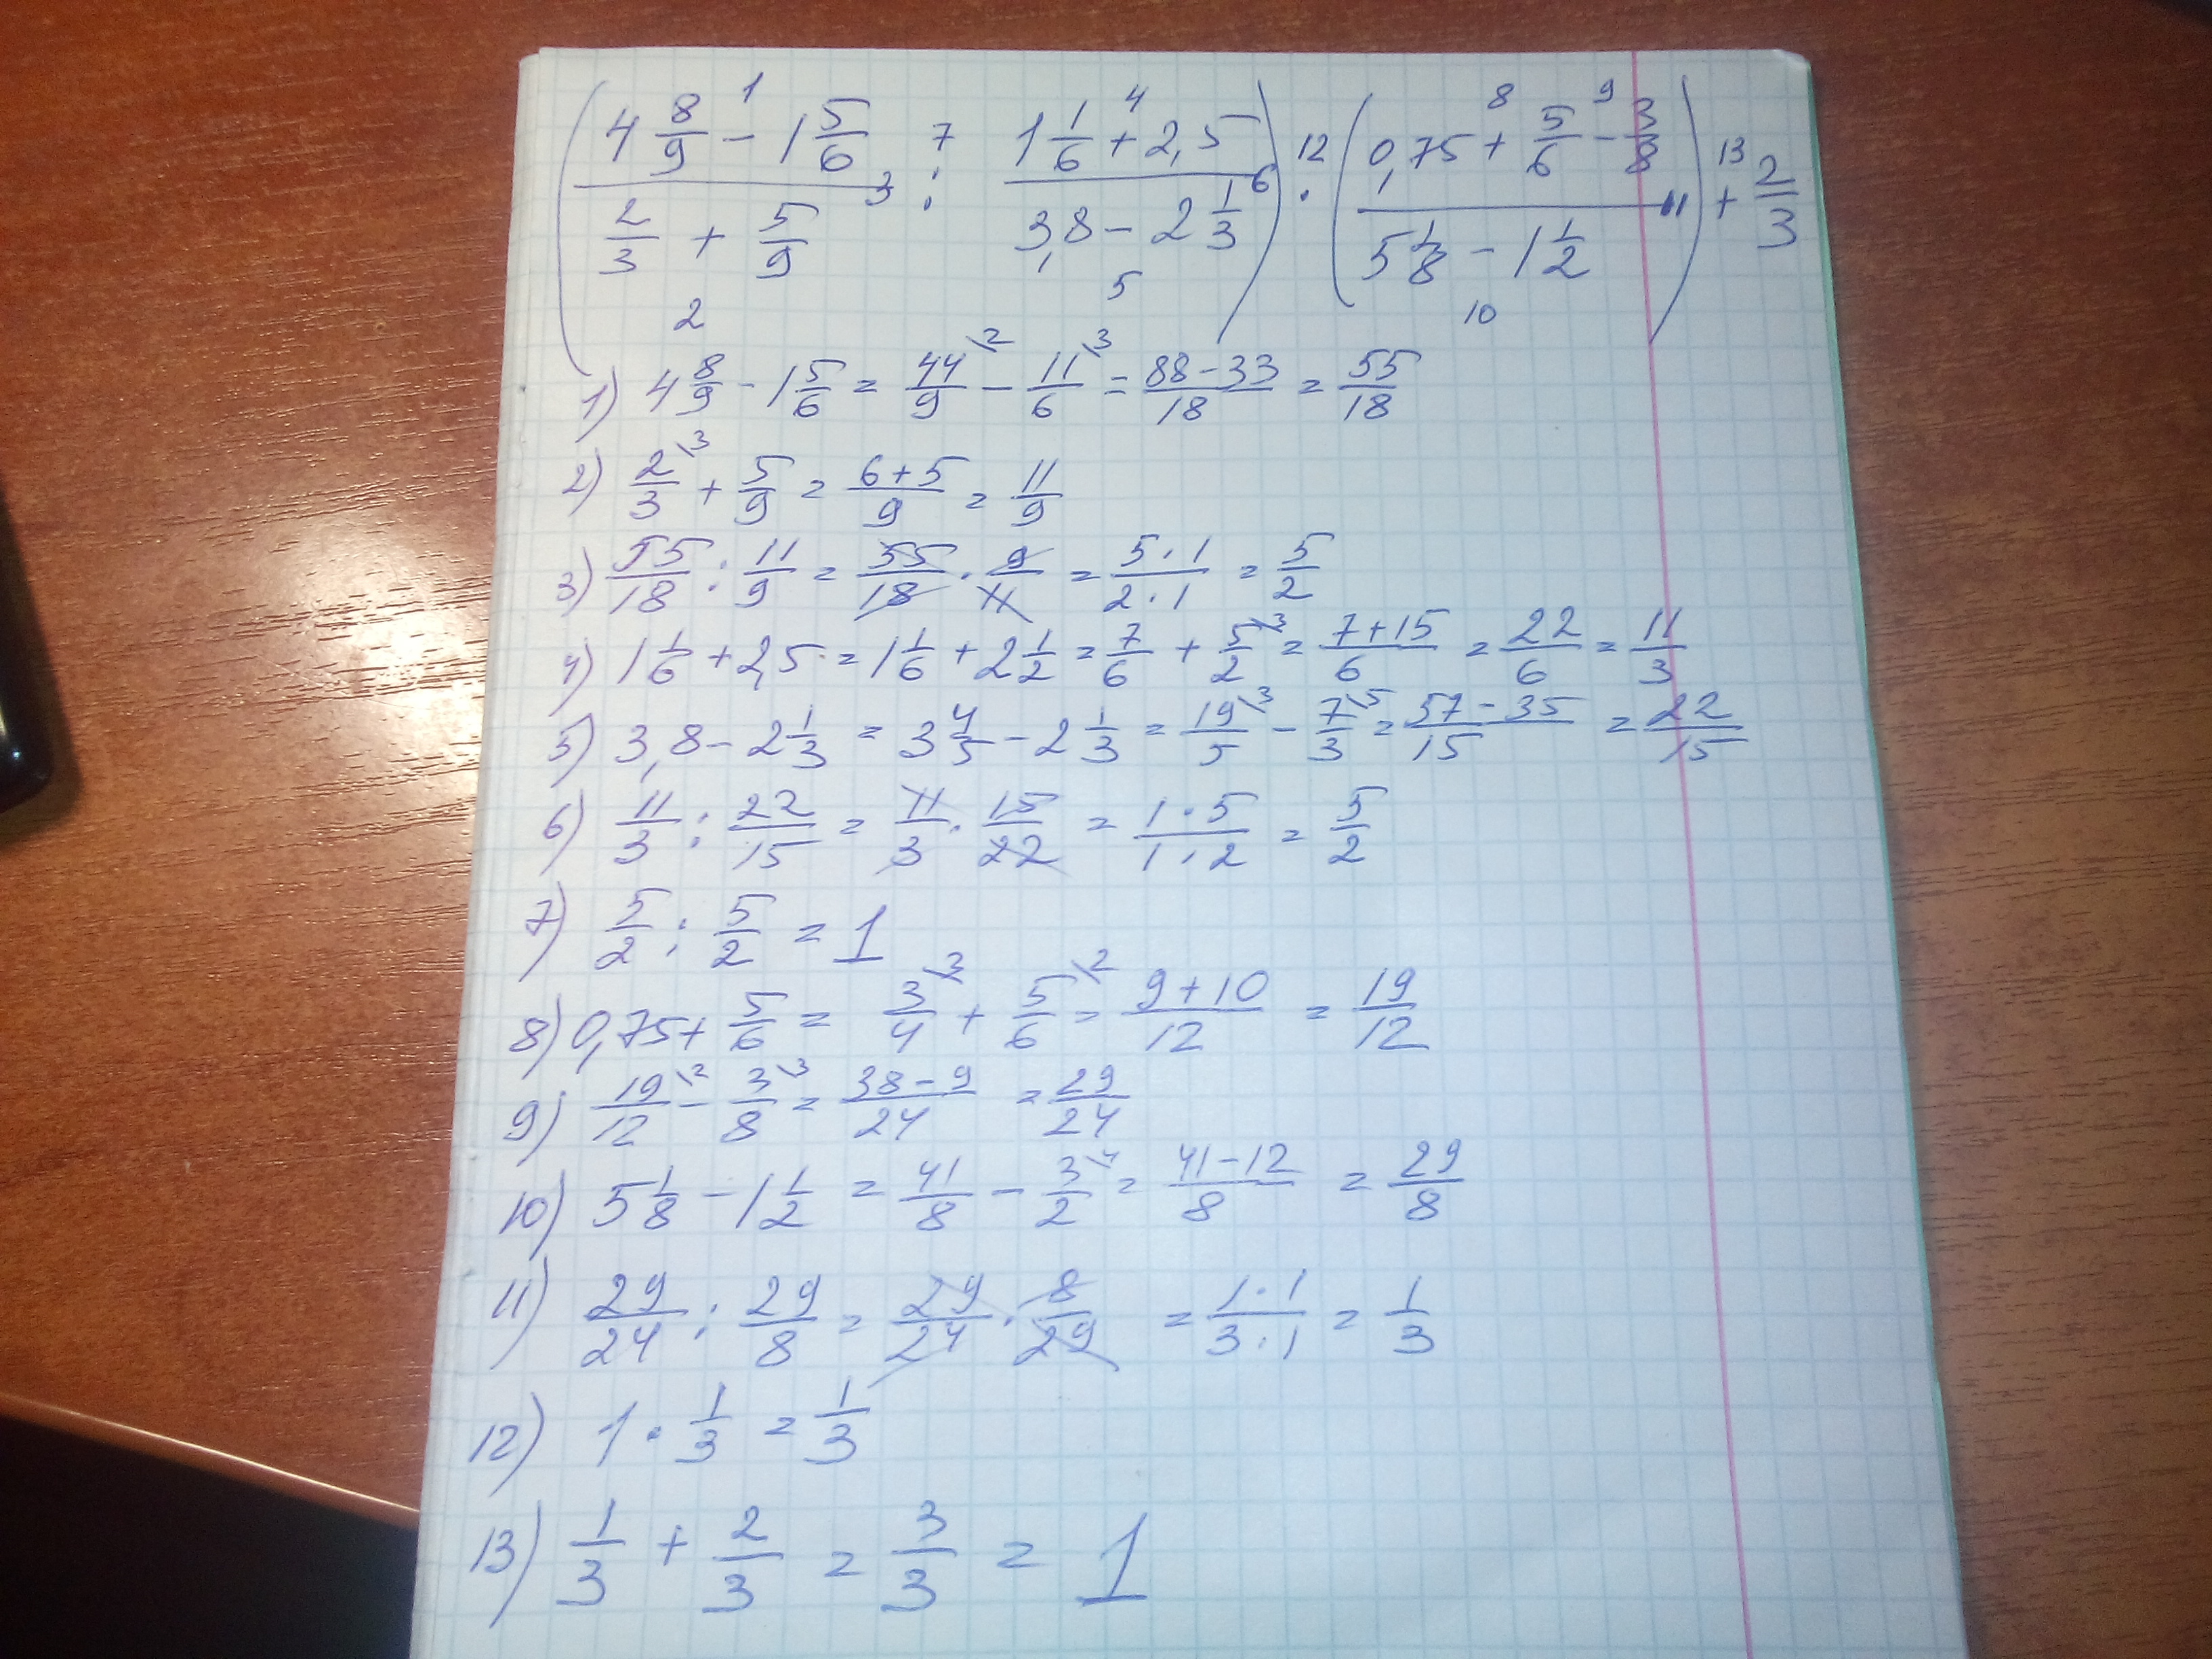 ( (4 8/9 - 1 5/6) / (2/3 + 5/9) : (1 1/6 + 2,5) / (3,8 - 2 1/3) ) · ( (0,75 + 5/6 - 3/8) / (5 1/8 - 1 1/2) ) + 2/3
1) 4 8/9 - 1 5/6 = 44/9 \2 - 11/6 \3 = (88-33)/18 = 55/18
2) 2/3 \3 + 5/9 = (6+5)/9 = 11/9
3) 55/18 : 11/9 = 55/18 · 9/11 = (5·1)/(2·1) = 5/2
4) 1 1/6 + 2,5 = 1 1/6 + 2 1/2 = 7/6 + 5/2 \3 = (7+15)/6 = 22/6 = 11/3
5) 3,8 - 2 1/3 = 3 4/5 - 2 1/3 = 19/5 \3 - 7/3 \5 = (57-35)/15 = 22/15
6) 11/3 : 22/15 = 11/3 · 15/22 = (1·5)/(1·2) = 5/2
7) 5/2 : 5/2 = 1
8) 0,75 + 5/6 = 3/4 \3 + 5/6 \2 = (9+10)/12 = 19/12
9) 19/12 \2 - 3/8 \3 = (38-9)/24 = 29/24
10) 5 1/8 - 1 1/2 = 41/8 - 3/2 \4 = (41-12)/8 = 29/8
11) 29/24 : 29/8 = 29/24 · 8/29 = (1·1)/(3·1) = 1/3
12) 1 · 1/3 = 1/3
13) 1/3 + 2/3 = 3/3 = 1